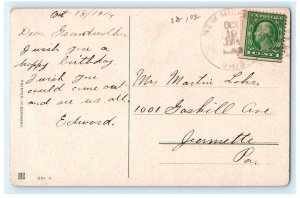 Oct 18/1914
Dear Grandmother
I wish you a
happy birthday.
I wish you
could come out
and see us all.
Edward.
Mrs. Martin Lohr,
1001 Gaskill Ave
Jeannette
Pa.
PRINTED IN GERMANY
OCT
19